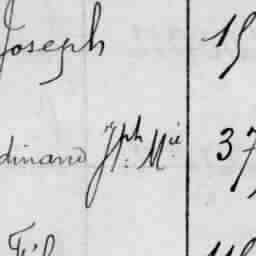 Joseph 15
dinand Jph. Mie 37